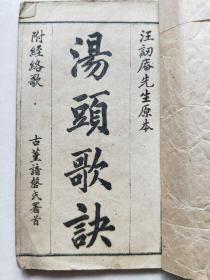 汪訒庵先生原本
湯頭歌訣
附經絡歌
古堇諳磬氏署首